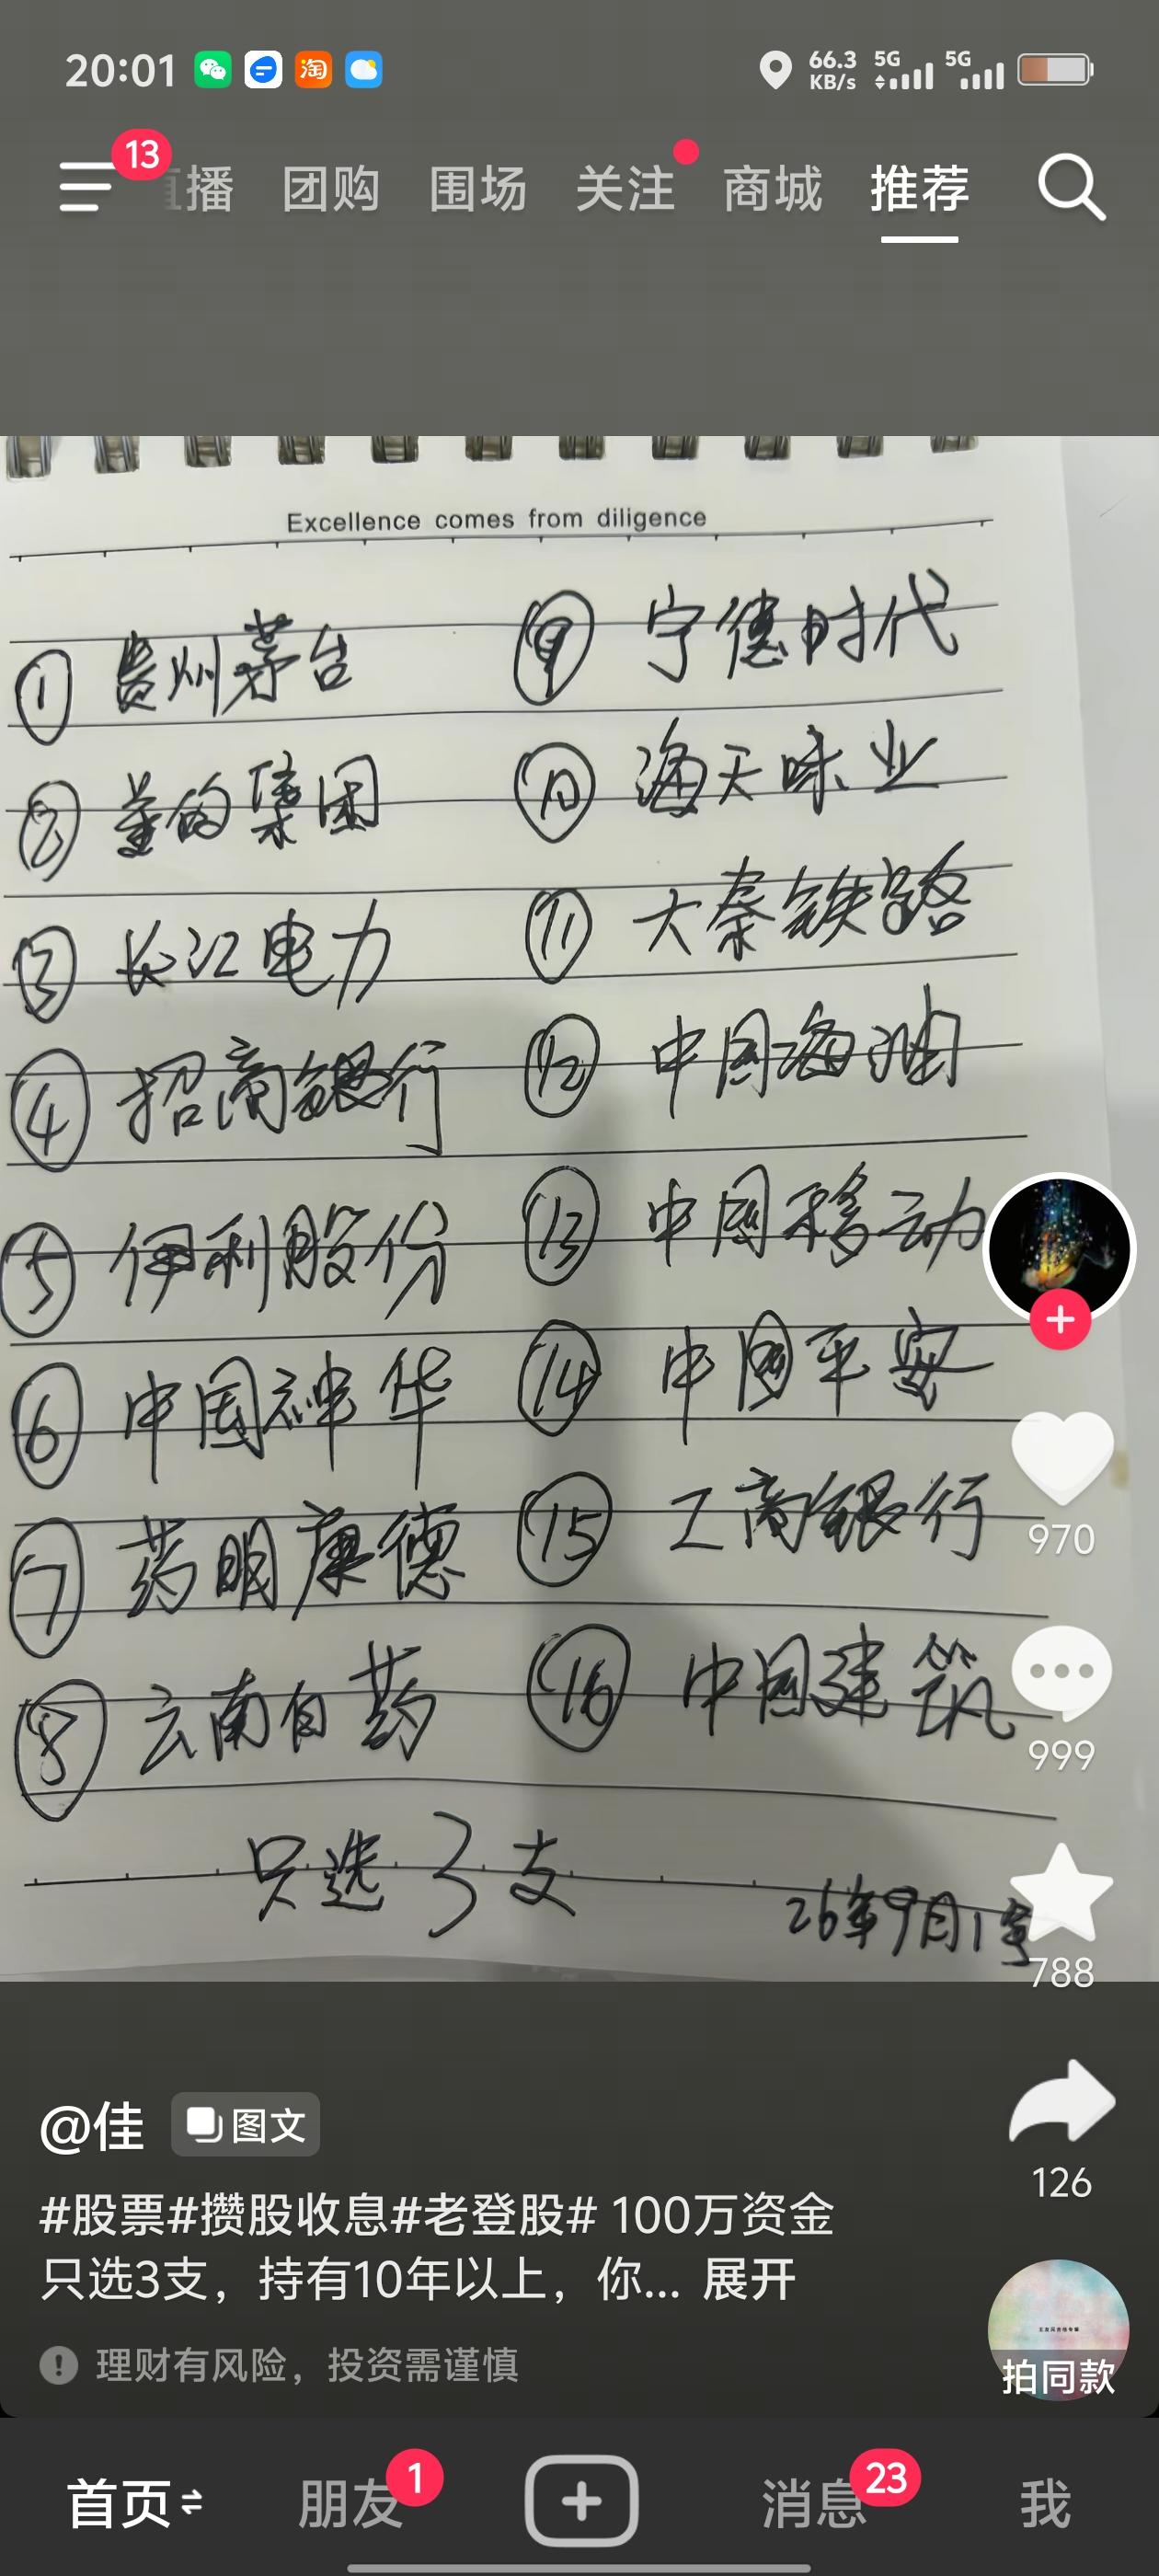 20:01
淘
66.3
KB/s
5G
5G
13
直播 团购 围场 关注 商城 推荐
Excellence comes from diligence
① 贵州茅台
② 美的集团
③ 长江电力
④ 招商银行
⑤ 伊利股份
⑥ 中国神华
⑦ 药明康德
⑧ 云南白药
⑨ 宁德时代
⑩ 海天味业
⑪ 大秦铁路
⑫ 中国海油
⑬ 中国移动
⑭ 中国平安
⑮ 工商银行
⑯ 中国建筑
只选3支
26年9月1号
970
999
788
126
@佳 图文
#股票#攒股收息#老登股# 100万资金
只选3支，持有10年以上，你... 展开
理财有风险，投资需谨慎
拍同款
首页 朋友 1 消息 23 我